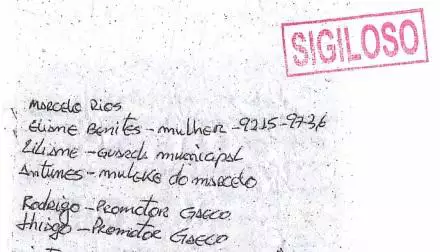 SIGILOSO
Marcelo Rios
Eliane Benites - mulher - 9215-9736
Liliane - Guarda municipal
Antunes - muleke do marcelo
Rodrigo - Promotor GAECO
Thiago - Promotor GAECO